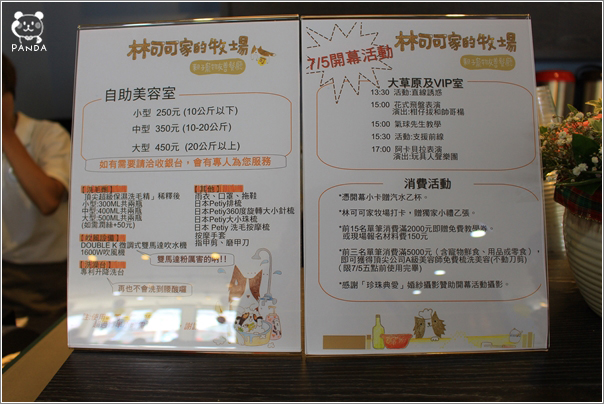 PANDA
林可可家的牧場
自助美容室
小型 250元 (10公斤以下)
中型 350元 (10-20公斤)
大型 450元 (20公斤以上)
如有需要請洽收銀台,會有專人為您服務
「頂尖超級保濕洗毛精」稀釋後
小型:300ML共兩瓶
中型:400ML共兩瓶
大型:500ML共兩瓶
(如需潤絲+50元)
DOUBLE K 微調式雙馬達吹水機
1600W吹風機
專利升降洗台
【其他】
雨衣、口罩、拖鞋
日本Petiy排梳
日本Petiy360度旋轉大小針梳
日本Petiy大小珠梳
日本Petiy 洗毛按摩梳
按摩手套
指甲剪、磨甲刀
雙馬達粉厲害的啦!!
再也不會洗到腰酸囉
7/5開幕活動
林可可家的牧場
大草原及VIP室
13:30 活動:直線誘惑
15:00 花式飛盤表演
演出:柑仔拔和帥哥楊
15:00 氣球先生教學
15:30 活動:支援前線
17:00 阿卡貝拉表演
演出:玩具人聲樂團
消費活動
*憑開幕小卡贈汽水乙杯。
*林可可家牧場打卡,贈獨家小禮乙張。
*前15名單筆消費滿2000元即贈免費教學券,
或現場報名材料費150元
*前三名單筆消費滿5000元(含寵物鮮食、用品或零食),
即可獲得頂尖公司A級美容師免費梳洗美容(不動刀剪)
(限7/5五點前使用完畢)
*感謝「珍珠典愛」婚紗攝影贊助開幕活動攝影。